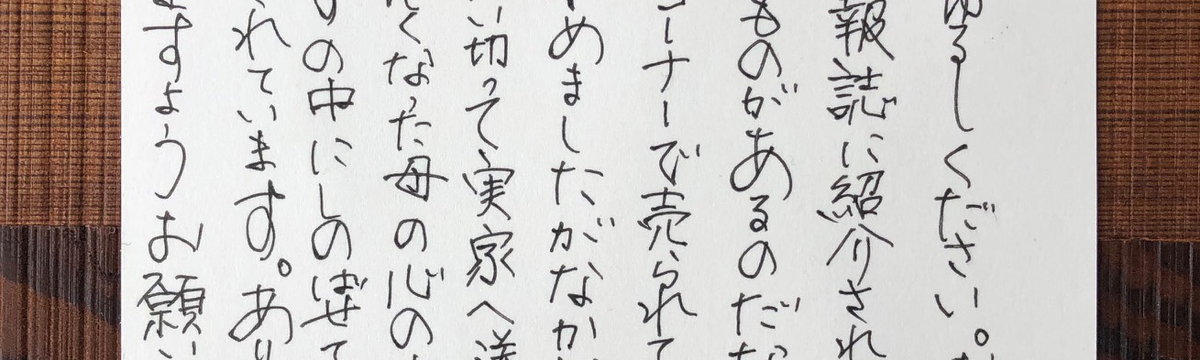 るしください。
報誌に紹介され
ものがあるのだな
ーナーで売られて
めましたがなか
い切って実家へ送
くなった母の心の
の中にしのばせて
れています。あり
ますようお願い